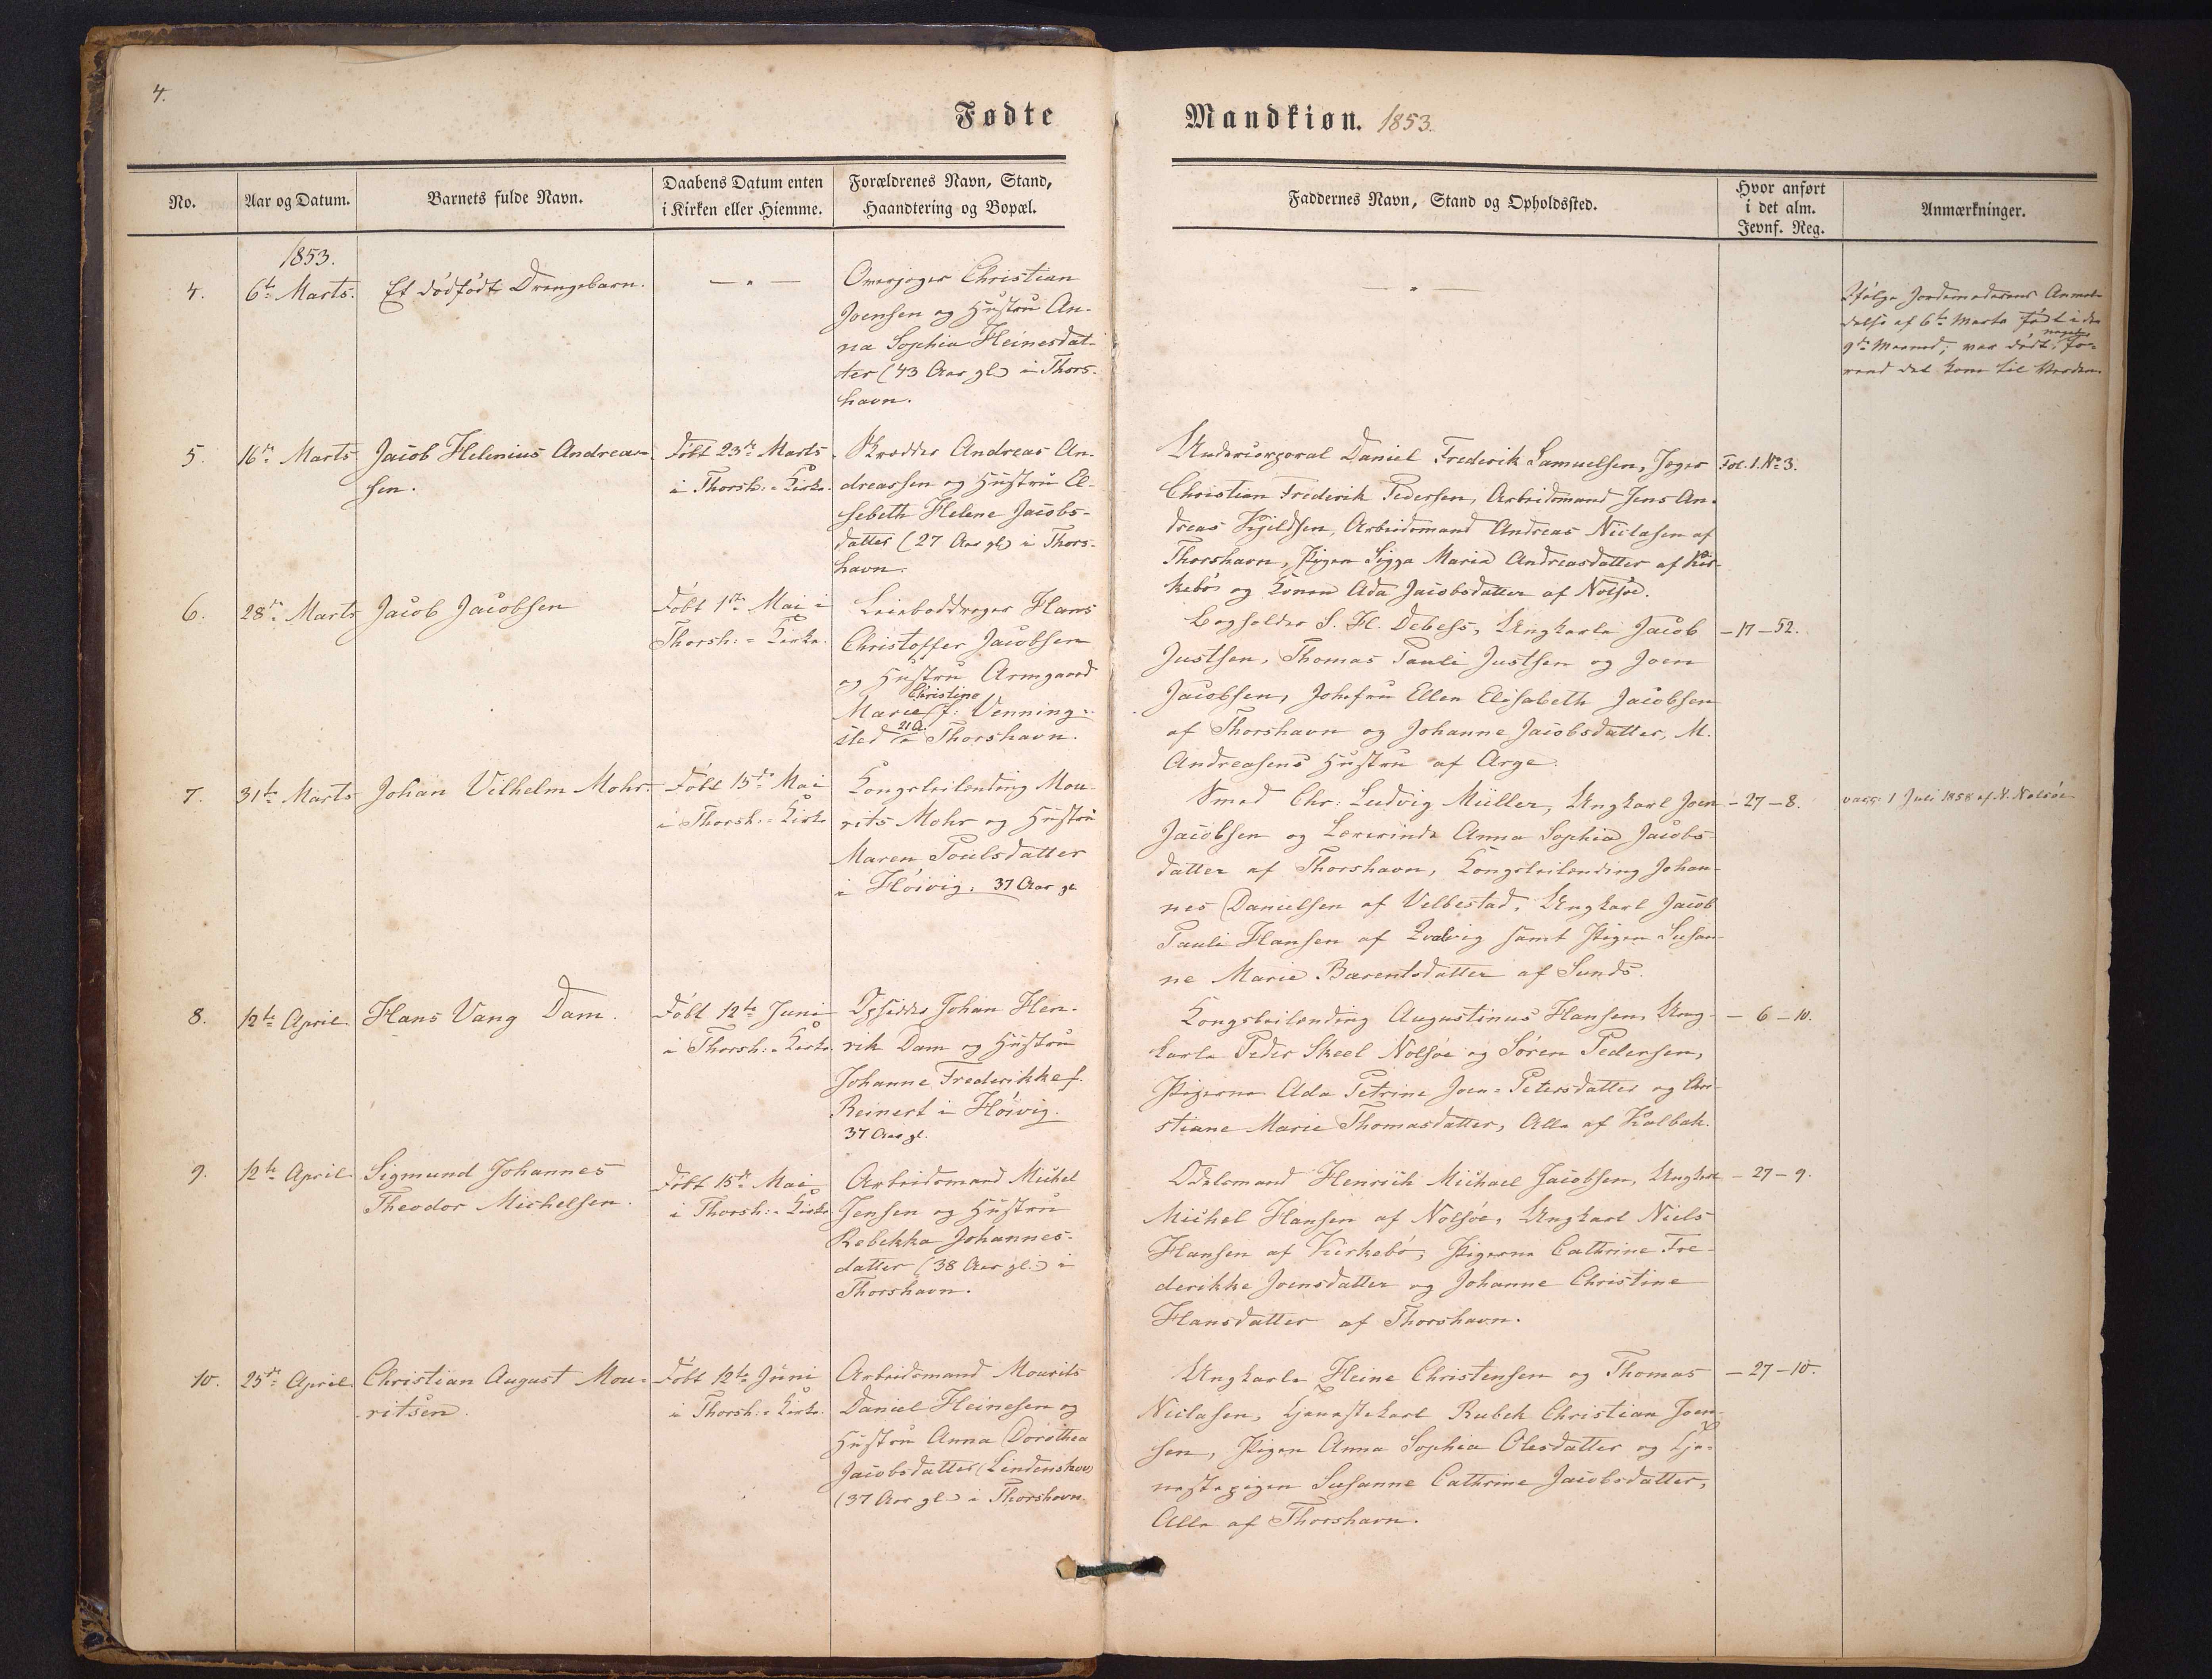 4.
Fødte
Mandkiøn. 1853.
No.
Aar og Datum.
Barnets fulde Navn.
Daabens Datum enten
i Kirken eller Hiemme.
Forældrenes Navn, Stand,
Haandtering og Bopæl.
Faddernes Navn, Stand og Opholdssted.
Hvor anført
i det alm.
Jevnf. Reg.
Anmærkninger.
1853.
4.
6te Marts.
Et dødfødt Drengebarn.
— " —
Overjæger Christian
Joensen og Hustru An-
na Sophia Heinesdat-
ter (43 Aar gl.) i Thors-
havn.
— " —
Ifølge Jordemoderens Anmel-
delse af 6te Marts født i den
9de Maaned; var dødt noget fo-
rend det kom til Verden.
5.
16de Marts
Jacob Helenius Andreas-
sen.
Døbt 23de Marts
i Thorsh: Kirke.
Skrædder Andreas An-
dreassen og Hustru El-
sebeth Helene Jacobs-
datter (27 Aar gl.) i Thors-
havn.
Undercorporal Daniel Frederik Samuelsen, Jæger
Christian Friderik Pedersen, Arbeidsmand Jens An-
dreas Kjeldsen, Arbeidsmand Andreas Niclasen af
Thorshavn, Pigen Sigga Maria Andreasdatter af Kir-
kebø og Konen Ada Jacobsdatter af Nolsøe.
Fol. 1. No 3.
6.
28de Marts
Jacob Jacobsen
Døbt 1ste Mai i
Thorsh: Kirke.
Hans
Christoffer Jacobsen
og Hustru Armgaard
Christine
Marie f: Venning-
21 A.
sted i Thorshavn.
Bogholder S. H. Debess, Ungkarle Jacob
Justsen, Thomas Pauli Justsen og Joen
Jacobsen, Jomfru Ellen Elisabeth Jacobsen
af Thorshavn og Johanne Jacobsdatter, M.
Andreasens Hustru af Arge.
— 17 — 52.
7.
31te Marts
Johan Vilhelm Mohr.
Døbt 15de Mai
i Thorsh: Kirke
Kongsleilending Mou-
rits Mohr og Hustru
Maren Poulsdatter
i Høivig. 37 Aar gl.
Smed Chr: Ludvig Müller, Ungkarl Joen
Jacobsen og Lærerinde Anna Sophia Jacobs-
datter af Thorshavn, Kongsleilending Johan-
nes Danielsen af Velbestad, Ungkarl Jacob
Pauli Hansen af Qvalvig samt Pigen Susan-
ne Marie Barentsdatter af Sund.
— 27 — 8.
vacc: 1 Juli 1858 af N. Nolsøe
8.
12te April
Hans Vang Dam.
Døbt 12te Juni
i Thorsh: Kirke.
Opsidder Johan Hen-
rik Dam og Hustru
Johanne Frederikke f.
Reinert i Høivig.
37 Aar gl.
Kongsleilending Augustinus Hansen, Ung-
karle Peder Skeel Nolsøe og Søren Pedersen,
Pigerne Ada Petrine Joen-Petersdatter og Chri-
stiane Marie Thomasdatter, Alle af Kalbak.
— 6 — 10.
9.
12te April
Sigmund Johannes
Theodor Michelsen.
Døbt 15de Mai
i Thorsh: Kirke.
Arbeidsmand Michel
Jensen og Hustru
Rebekka Johannes-
datter (38 Aar gl.) i
Thorshavn.
Odelsmand Henrich Michael Jacobsen, Ungkarl
Michel Hansen af Nolsøe, Ungkarl Niels
Hansen af Kirkebø, Pigerne Cathrine Fre-
derikke Joensdatter og Johanne Christine
Hansdatter af Thorshavn.
— 27 — 9.
10.
25de April
Christian August Mou-
ritsen.
Døbt 12te Juni
i Thorsh: Kirke.
Arbeidsmand Mourits
Daniel Heinesen og
Hustru Anna Dorothea
Jacobsdatter (Lindenskov)
(37 Aar gl.) i Thorshavn.
Ungkarle Heine Christensen og Thomas
Niclasen, Tjenestekarl Rubek Christian Joen-
sen, Pigen Anna Sophia Olesdatter og Tje-
nestepigen Susanne Cathrine Jacobsdatter,
Alle af Thorshavn.
— 27 — 10.